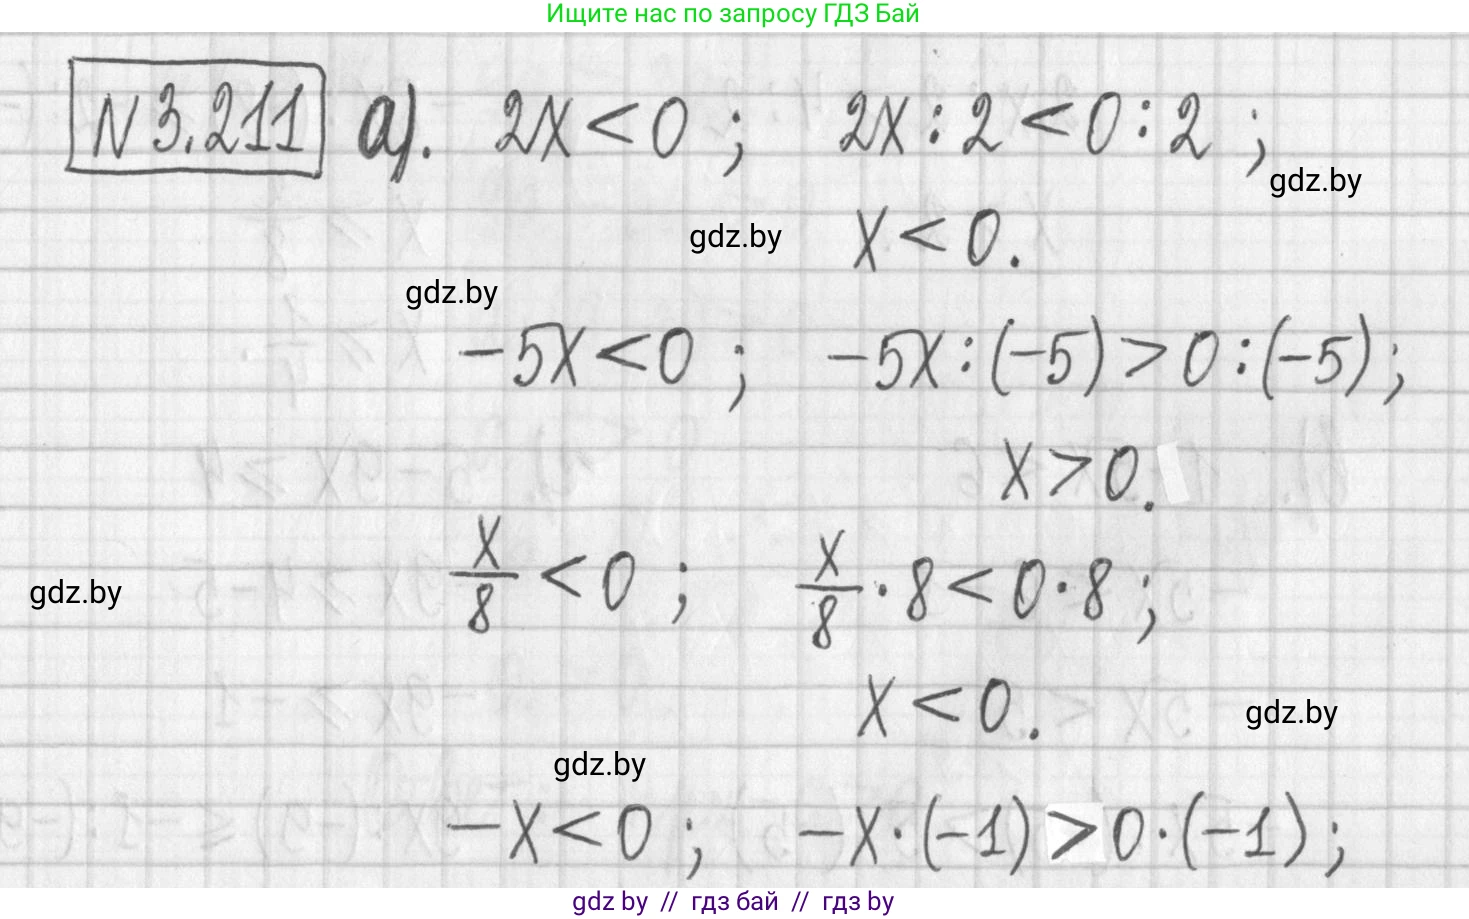 Ищите нас по запросу ГДЗ Бай
N 3.211 а). 2x < 0 ; 2x : 2 < 0 : 2 ;
gdz.by
gdz.by x < 0.
gdz.by
-5x < 0 ; -5x : (-5) > 0 : (-5) ;
x > 0.
x/8 < 0 ; x/8 · 8 < 0 · 8 ;
gdz.by
x < 0. gdz.by
gdz.by
-x < 0 ; -x · (-1) > 0 · (-1) ;
gdz by // гдз бай // гдз by